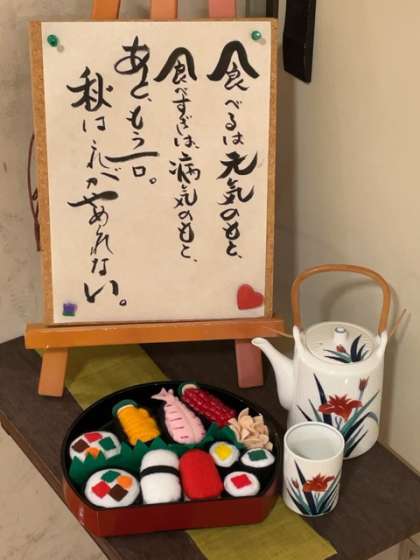 食べるは元気のもと、
食べすぎは、病気のもと、
あと、もう一口。
秋はこれがやめれない。